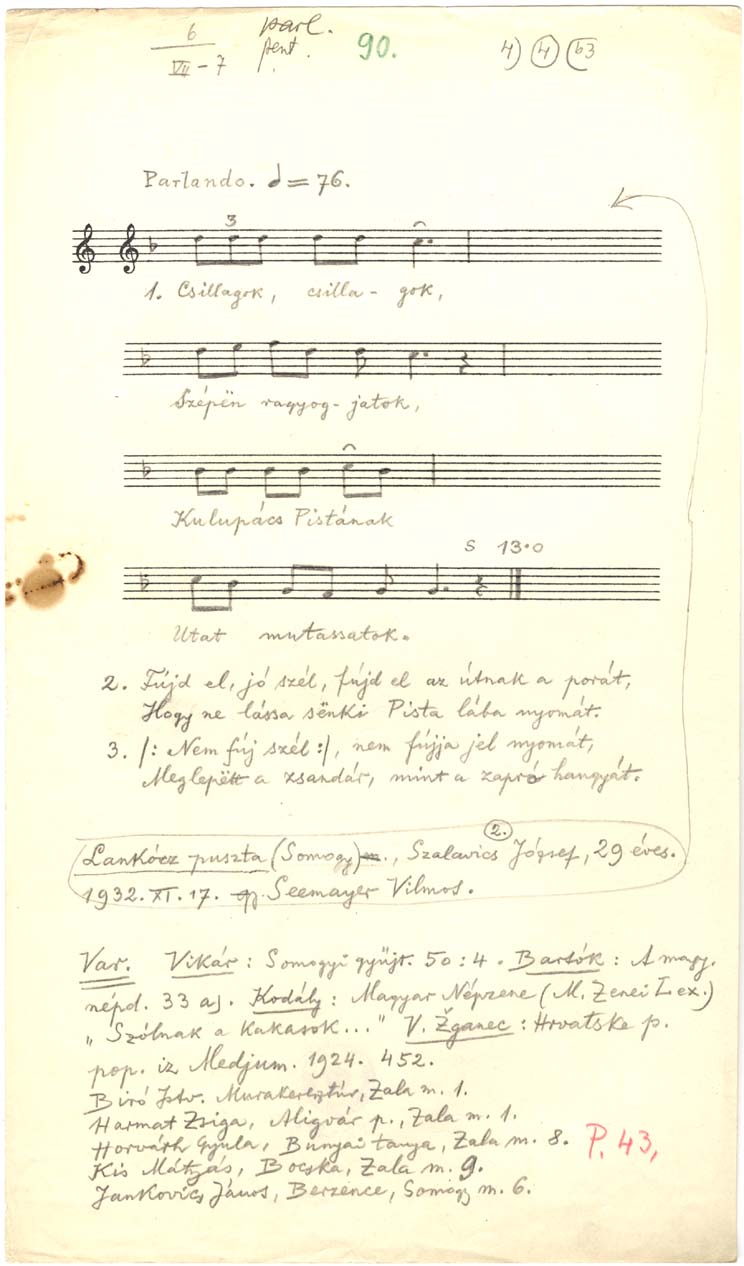 6 parl. 90. 4) 4 b3
VII - 7 pent.
Parlando. = 76.
3
1. Csillagok, csilla - gok,
Szépën ragyog - jatok,
Kulupács Pistának
S 13.0
Utat mutassatok.
2. Fújd el, jó szél, fújd el az útnak a porát,
Hogy ne lássa sënki Pista lába nyomát.
3. /: Nem fúj szél :/, nem fújja jel nyomát,
Meglepëtt a zsandár, mint a zapró hangyát.
2.
Lankócz puszta (Somogy) m., Szalavics József, 29 éves.
1932. XI. 17. Seemayer Vilmos.
Var. Vikár : Somogyi gyűjt. 50 : 4 . Bartók : A magy.
népd. 33 a). Kodály : Magyar Népzene (M. Zenei Lex.)
"Szólnak a kakasok..." V. Žganec : Hrvatske p.
pop. iz Medjum. 1924. 452.
Biró Istv. Murakeresztúr, Zala m. 1.
Harmat Zsiga, Aligvár p., Zala m. 1.
Horváth Gyula, Bunyai tanya, Zala m. 8. P. 43,
Kis Mátyás, Bocska, Zala m. 9.
Jankovics János, Berzence, Somogy m. 6.